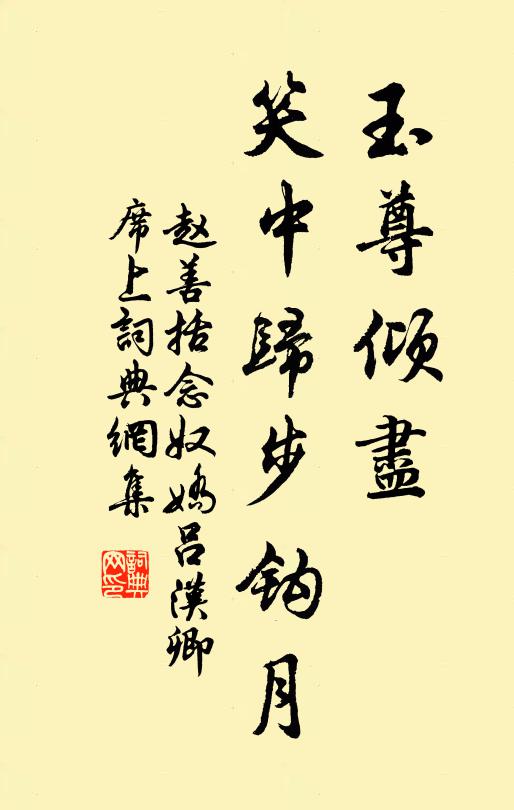 玉尊傾盡
笑中歸步鉤月
赵善括念奴嬌吕漢卿
席上詞典網集
詞典
网印